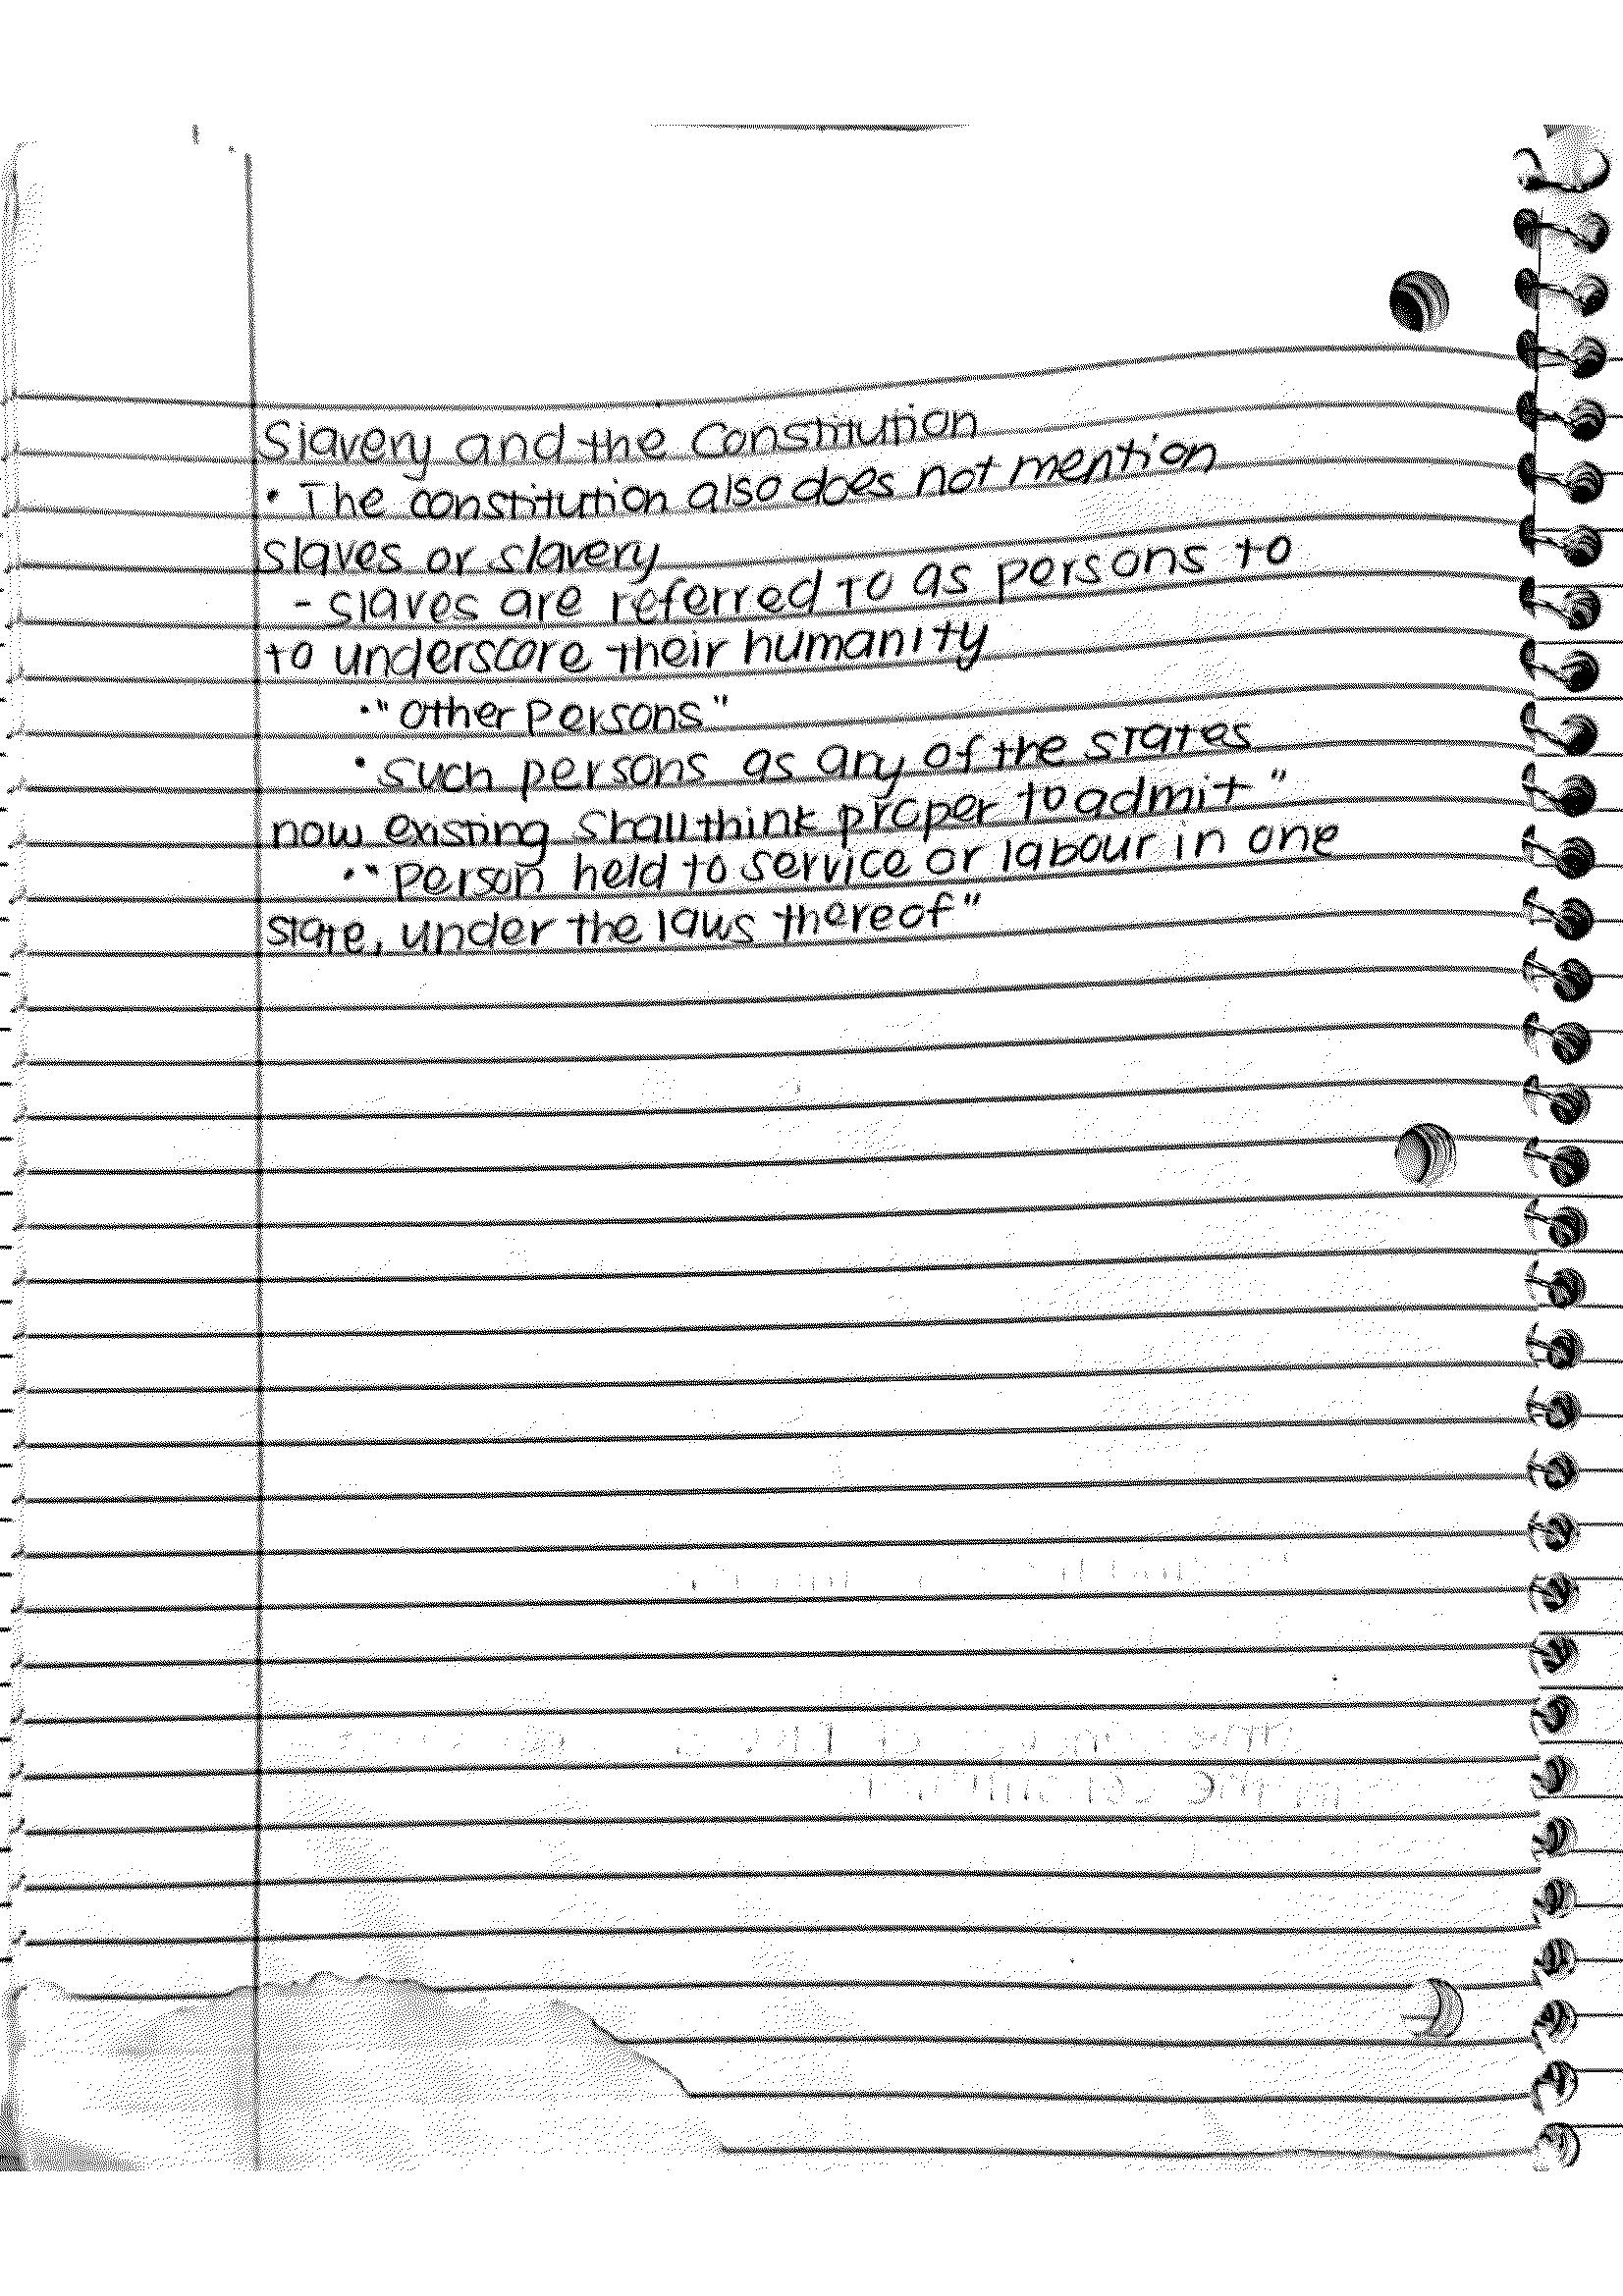 Slavery and the Constitution
• The constitution also does not mention
slaves or slavery
- slaves are referred to as persons to
to underscore their humanity
• "other persons"
• such persons as any of the states
now existing shall think proper to admit"
• "person held to service or labour in one
state, under the laws thereof"